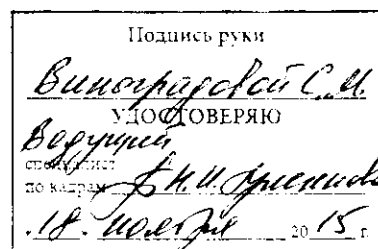 Подпись руки
Виноградовой С.М.
УДОСТОВЕРЯЮ
Ведущий
специалист
по кадрам Н.И.
"18" ноября 2015 г.